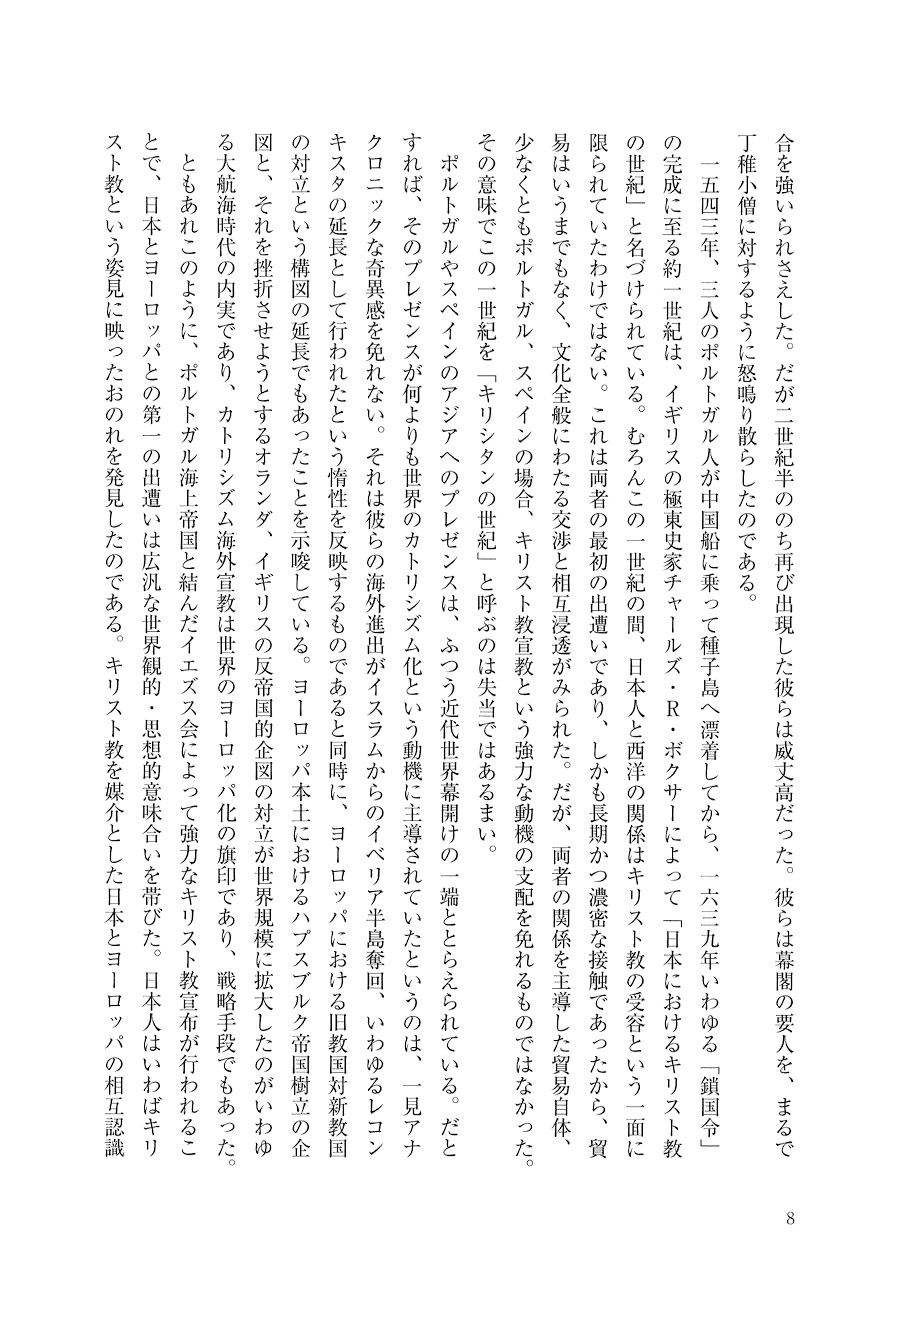 合を強いられさえした。だが二世紀半ののち再び出現した彼らは威丈高だった。彼らは幕閣の要人を、まるで
丁稚小僧に対するように怒鳴り散らしたのである。
　一五四三年、三人のポルトガル人が中国船に乗って種子島へ漂着してから、一六三九年いわゆる「鎖国令」
の完成に至る約一世紀は、イギリスの極東史家チャールズ・R・ボクサーによって「日本におけるキリスト教
の世紀」と名づけられている。むろんこの一世紀の間、日本人と西洋の関係はキリスト教の受容という一面に
限られていたわけではない。これは両者の最初の出遭いであり、しかも長期かつ濃密な接触であったから、貿
易はいうまでもなく、文化全般にわたる交渉と相互浸透がみられた。だが、両者の関係を主導した貿易自体、
少なくともポルトガル、スペインの場合、キリスト教宣教という強力な動機の支配を免れるものではなかった。
その意味でこの一世紀を「キリシタンの世紀」と呼ぶのは失当ではあるまい。
　ポルトガルやスペインのアジアへのプレゼンスは、ふつう近代世界幕開けの一端ととらえられている。だと
すれば、そのプレゼンスが何よりも世界のカトリシズム化という動機に主導されていたというのは、一見アナ
クロニックな奇異感を免れない。それは彼らの海外進出がイスラムからのイベリア半島奪回、いわゆるレコン
キスタの延長として行われたという惰性を反映するものであると同時に、ヨーロッパにおける旧教国対新教国
の対立という構図の延長でもあったことを示唆している。ヨーロッパ本土におけるハプスブルク帝国樹立の企
図と、それを挫折させようとするオランダ、イギリスの反帝国的企図の対立が世界規模に拡大したのがいわゆ
る大航海時代の内実であり、カトリシズム海外宣教は世界のヨーロッパ化の旗印であり、戦略手段でもあった。
　ともあれこのように、ポルトガル海上帝国と結んだイエズス会によって強力なキリスト教宣布が行われるこ
とで、日本とヨーロッパとの第一の出遭いは広汎な世界観的・思想的意味合いを帯びた。日本人はいわばキリ
スト教という姿見に映ったおのれを発見したのである。キリスト教を媒介とした日本とヨーロッパの相互認識
8